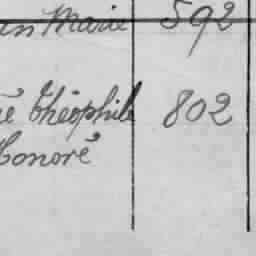 Marie 592
Théophile 802
Honoré